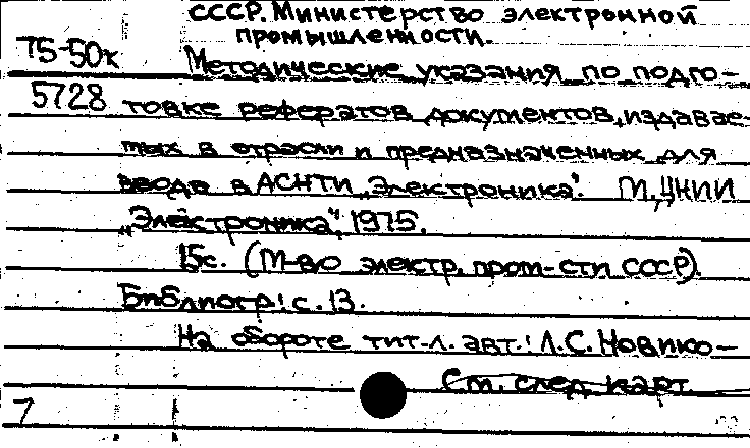 СССР. Министерство электронной
промышленности.
75-50к
Методические указания по подго-
5728
товке рефератов документов, издавае-
мых в отрасли и предназначенных для
ввода в АСНТИ „Электроника". М., ЦНИИ
„Электроника", 1975.
15с. (М-во электр. пром-сти СССР).
Библиогр: с. 13.
На обороте тит. л. авт.: Л.С. Новико-
См. след. карт.
7